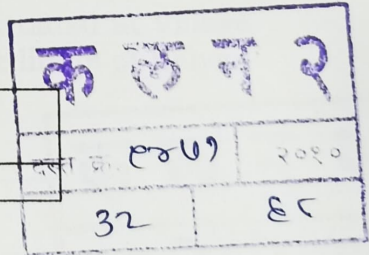 क ल न २
दस्त क्र. ९२७१ २०१०
32 ६८